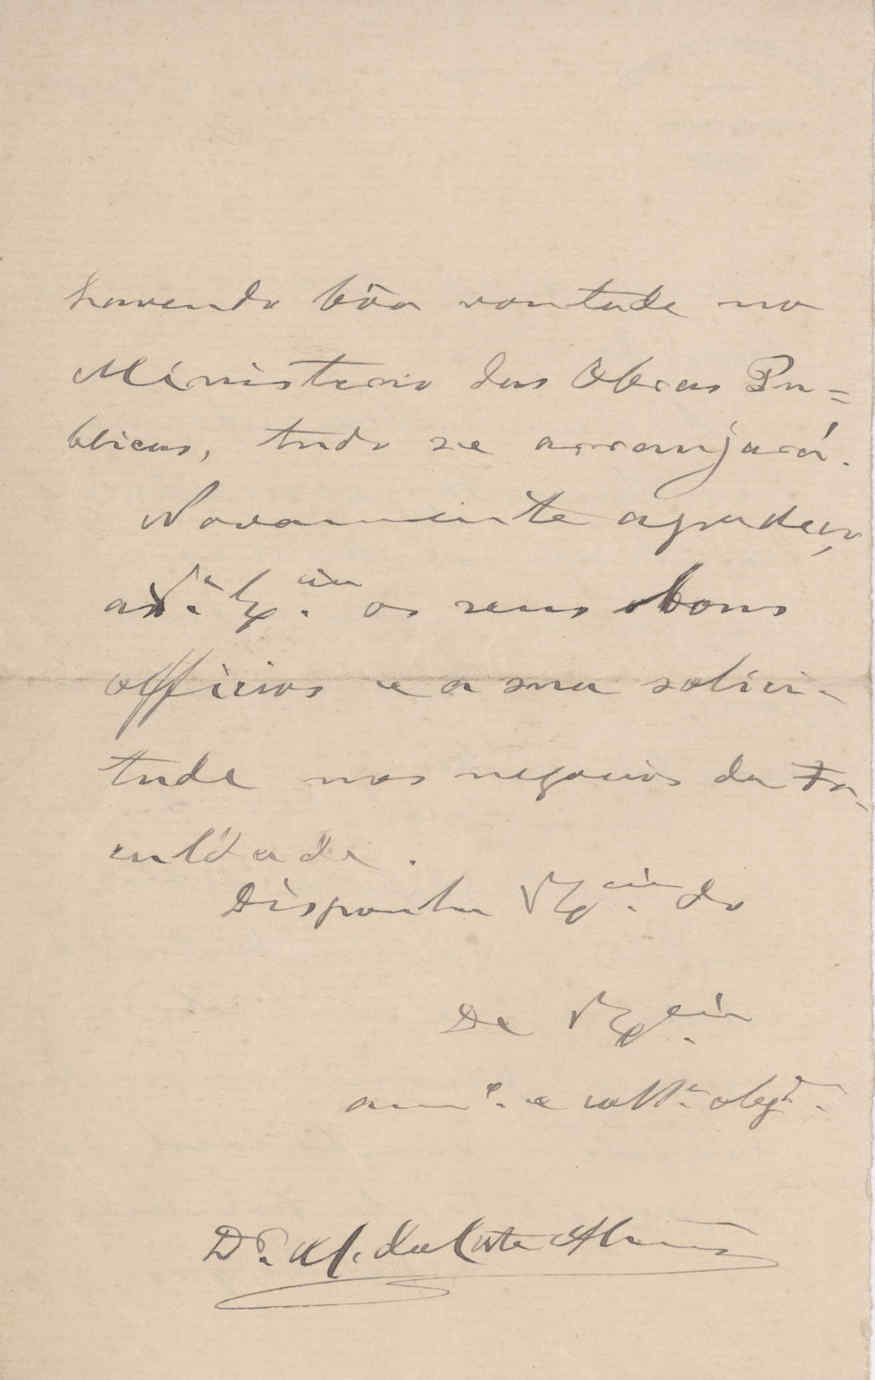 havendo bôa vontade no
Ministerio das Obras Pu=
blicas, tudo se arranjará.
Novamente agradeço
a V.ª Ex.cia os seus bons
officios e a sua solici-
tude nos negocios da Fa-
culdade.
Disponha V Ex.cia do
De V Ex.cia
am.º e coll.ª obg.º
Dr. M. da Costa Alemão